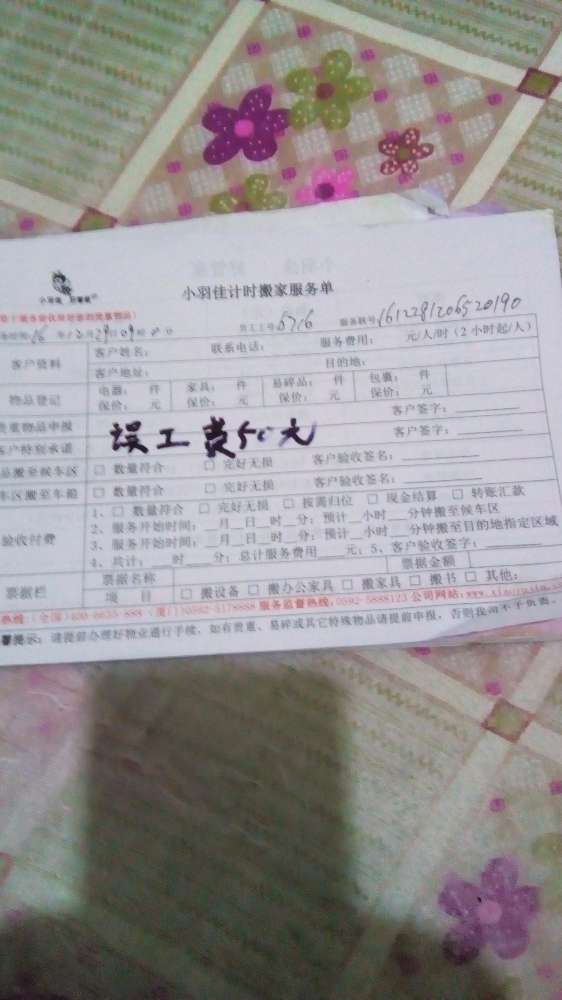 小羽佳计时搬家服务单
16 年 12 月 29 日 09 时 0 分 员工工号: 6716 服务联号: 1612281206520190
客户资料 客户姓名: 联系电话: 服务费用: 元/人/时(2小时起/人)
客户地址: 目的地:
物品登记 电器: 件 家具: 件 易碎品: 件 包裹: 件
保价: 元 保价: 元 保价: 元 保价: 元
贵重物品申报 客户签字:
客户特别承诺 误工费50元 客户签字:
品搬至候车区 □ 数量符合 □ 完好无损 客户验收签名:
车区搬至车箱 □ 数量符合 □ 完好无损 客户验收签名:
验收付费 1、□ 数量符合 □ 完好无损 □ 按需归位 □ 现金结算 □ 转账汇款
2、服务开始时间: 月 日 时 分; 预计 小时 分钟搬至候车区
3、服务开始时间: 月 日 时 分; 预计 小时 分钟搬至目的地指定区域
4、共计: 时 分; 总计服务费用 元; 5、客户验收签字:
票据栏 票据名称 票据金额
项 目 □ 搬设备 □ 搬办公家具 □ 搬家具 □ 搬书 □ 其他:
热线:(全国)400-6655-888 (厦门)0592-5178888 服务监督热线: 0592-5888123 公司网站:
馨提示: 请提前办理好物业通行手续, 如有贵重、易碎或其它特殊物品请提前申报, 否则我司不予负责。